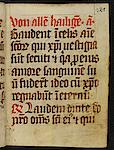 Von allē hailigē. ā.
Gaudent ī celis aīe
sctorꝝ qui xp̄i vestigia
sunt secuti ⁊ qꝛ pro eius
amore sanguinē su
ū fuderūt ideo cū xp̄o
regnabūt ī eternū.
Laudem dicite
oms sc̄i ei⁹ ⁊ qui